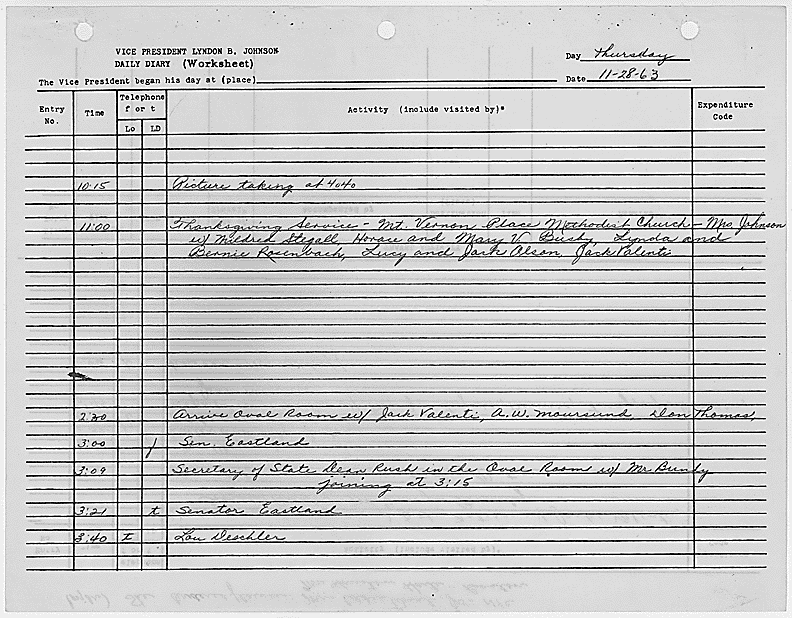 VICE PRESIDENT LYNDON B. JOHNSON
DAILY DIARY (Worksheet)
Day Thursday
The Vice President began his day at (place)
Date 11-28-63
Entry No.
Time
Telephone f or t
Lo LD
Activity (include visited by)*
Expenditure Code
10:15 Picture taking at 4040
11:00 Thanksgiving Service - Mt. Vernon Place Methodist Church - Mrs Johnson
w/ Mildred Stegall, Horace and Mary V. Busby, Lynda and
Bernie Rosenbach, Lucy and Jack Olson, Jack Valenti
2:30 Arrive Oval Room w/ Jack Valenti, A.W. Moursund, Don Thomas,
3:00 f Sen. Eastland
3:09 Secretary of State Dean Rusk in the Oval Room w/ Mr Bundy
joining at 3:15
3:21 t Senator Eastland
3:40 t Lou Deschler